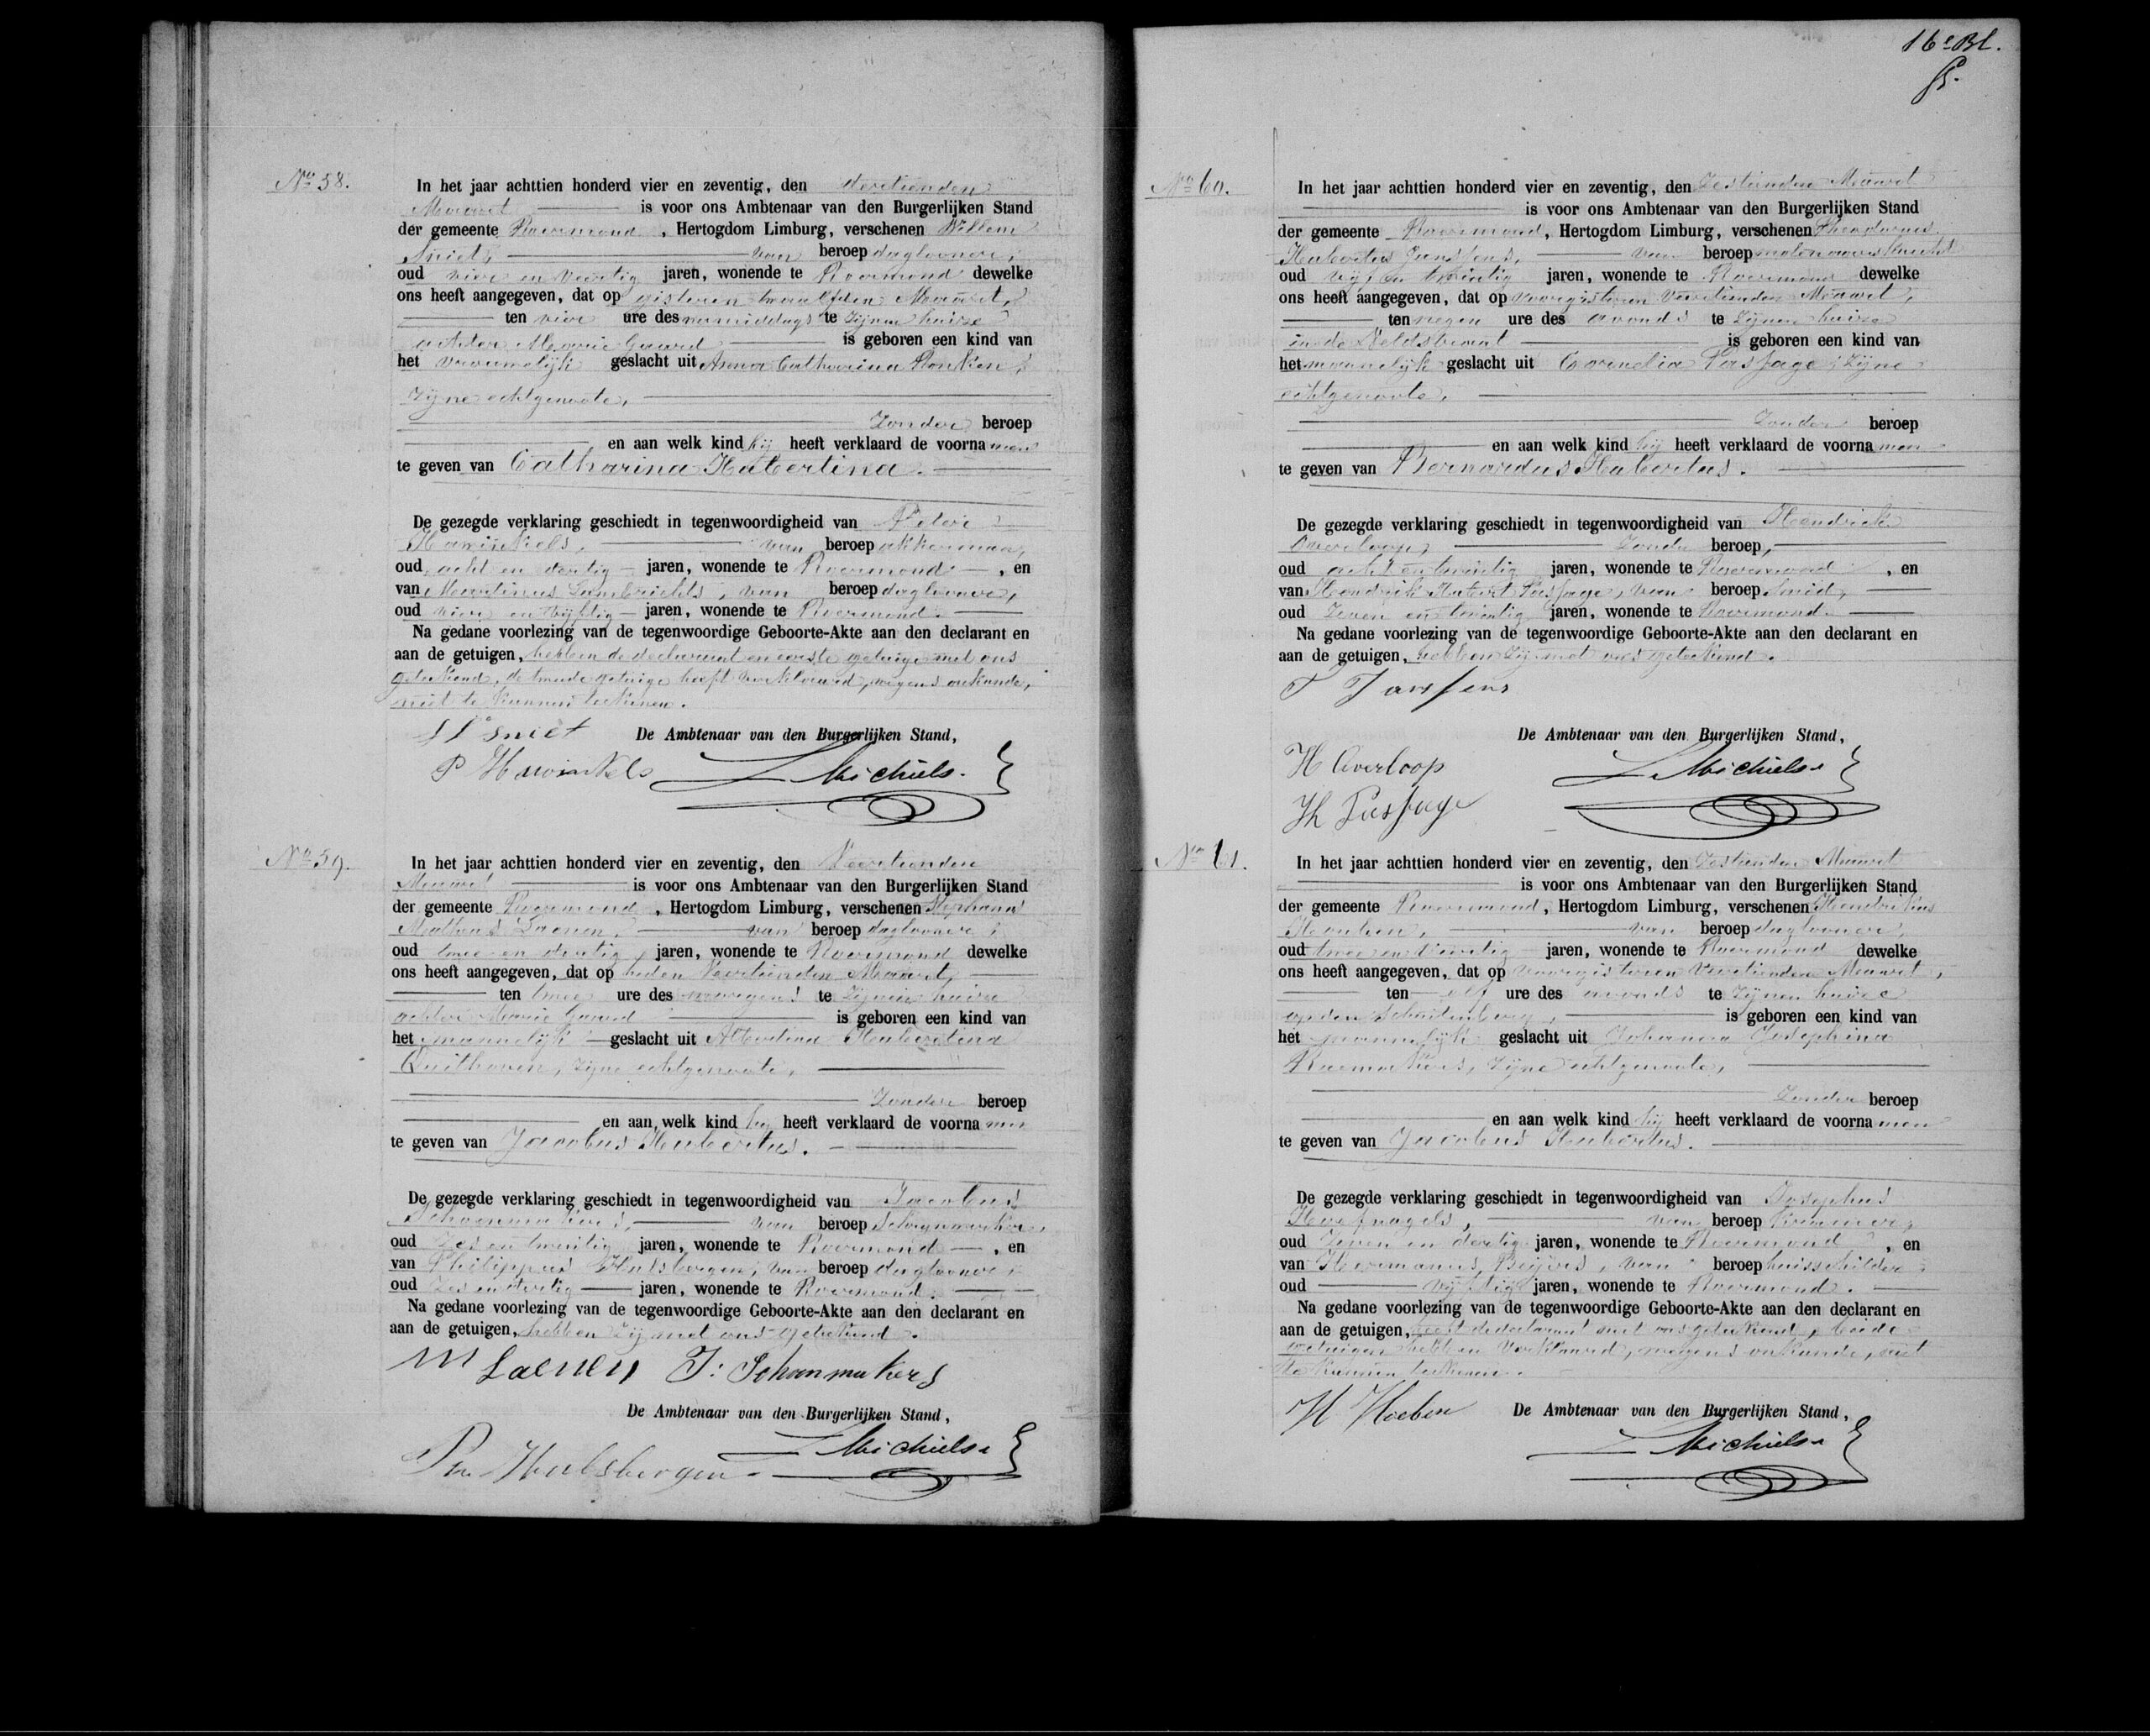 Nº 58.
In het jaar achttien honderd vier en zeventig, den dertienden
Maart is voor ons Ambtenaar van den Burgerlijken Stand
der gemeente Roermond, Hertogdom Limburg, verschenen Willem
Sniet, van beroep daglooner,
oud vier en veertig jaren, wonende te Roermond dewelke
ons heeft aangegeven, dat op gisteren twaalfden Maart,
ten vier ure des namiddags te zijnen huize
achter Marie Gaard is geboren een kind van
het vrouwelijk geslacht uit Anna Catharina
zijne echtgenoote,
zonder beroep
en aan welk kind hij heeft verklaard de voornamen
te geven van Catharina Hubertina.
De gezegde verklaring geschiedt in tegenwoordigheid van Peter
Hawinkels, van beroep akkerman,
oud acht en dertig jaren, wonende te Roermond, en
van Martinus Lambrichts, van beroep daglooner,
oud vier en vijftig jaren, wonende te Roermond.
Na gedane voorlezing van de tegenwoordige Geboorte-Akte aan den declarant en
aan de getuigen, hebben de declarant en eerste getuige met ons
geteekend, de tweede getuige heeft verklaard, wegens onkunde,
niet te kunnen teekenen.
W sniet De Ambtenaar van den Burgerlijken Stand,
P Hawinkels L Michiels.
Nº 59.
In het jaar achttien honderd vier en zeventig, den Veertienden
Maart is voor ons Ambtenaar van den Burgerlijken Stand
der gemeente Roermond, Hertogdom Limburg, verschenen Stephanus
Matheus Laenen, van beroep daglooner,
oud twee en dertig jaren, wonende te Roermond dewelke
ons heeft aangegeven, dat op heden Veertienden Maart,
ten twee ure des morgens te zijnen huize
achter Marie Gaard is geboren een kind van
het mannelijk geslacht uit Albertina Hubertina
Quithoven, zijne echtgenoote,
zonder beroep
en aan welk kind hij heeft verklaard de voornamen
te geven van Jacobus Hubertus.
De gezegde verklaring geschiedt in tegenwoordigheid van Jacobus
Schoenmakers, van beroep Schrynwerker,
oud zes en twintig jaren, wonende te Roermond, en
van Philippus Hulsbergen, van beroep daglooner,
oud zes en dertig jaren, wonende te Roermond.
Na gedane voorlezing van de tegenwoordige Geboorte-Akte aan den declarant en
aan de getuigen, hebben zij met ons geteekend.
M Laenen J: Schoenmakers
De Ambtenaar van den Burgerlijken Stand,
Ph Hulsbergen. L Michiels.
16e Bl.
Nº 60.
In het jaar achttien honderd vier en zeventig, den Zestienden Maart
is voor ons Ambtenaar van den Burgerlijken Stand
der gemeente Roermond, Hertogdom Limburg, verschenen Theodorus
Hubertus Janssens, van beroep molenaarsknecht
oud vijf en twintig jaren, wonende te Roermond dewelke
ons heeft aangegeven, dat op voorgisteren Veertienden Maart,
ten negen ure des avonds te zijnen huize
in de Veldstraat is geboren een kind van
het mannelijk geslacht uit Cornelia Passage, zijne
echtgenoote,
zonder beroep
en aan welk kind hij heeft verklaard de voornamen
te geven van Bernardus Hubertus.
De gezegde verklaring geschiedt in tegenwoordigheid van Hendrik
Overloop, zonder beroep,
oud acht en twintig jaren, wonende te Roermond, en
van Hendrik Hubert Passage, van beroep Smid,
oud Zeven en twintig jaren, wonende te Roermond.
Na gedane voorlezing van de tegenwoordige Geboorte-Akte aan den declarant en
aan de getuigen, hebben zij met ons geteekend.
T Janssens
De Ambtenaar van den Burgerlijken Stand,
H Overloop L Michiels.
Hh Passage
Nº 61.
In het jaar achttien honderd vier en zeventig, den Zestienden Maart
is voor ons Ambtenaar van den Burgerlijken Stand
der gemeente Roermond, Hertogdom Limburg, verschenen Hendrikus
Houben, van beroep daglooner,
oud twee en veertig jaren, wonende te Roermond dewelke
ons heeft aangegeven, dat op voorgisteren Veertienden Maart,
ten elf ure des avonds te zijnen huize
op den is geboren een kind van
het mannelijk geslacht uit Johanna Josephina
Raemakers, zijne echtgenoote,
zonder beroep
en aan welk kind hij heeft verklaard de voornamen
te geven van Jacobus Hubertus.
De gezegde verklaring geschiedt in tegenwoordigheid van Josephus
Hoefnagels, van beroep kramer,
oud Zeven en dertig jaren, wonende te Roermond, en
van Hermanus Beijers, van beroep huisschilder
oud vijftig jaren, wonende te Roermond.
Na gedane voorlezing van de tegenwoordige Geboorte-Akte aan den declarant en
aan de getuigen, heeft de declarant met ons geteekend, beide
getuigen hebben verklaard, wegens onkunde, niet
te kunnen teekenen.
H Hoeben De Ambtenaar van den Burgerlijken Stand,
L Michiels.